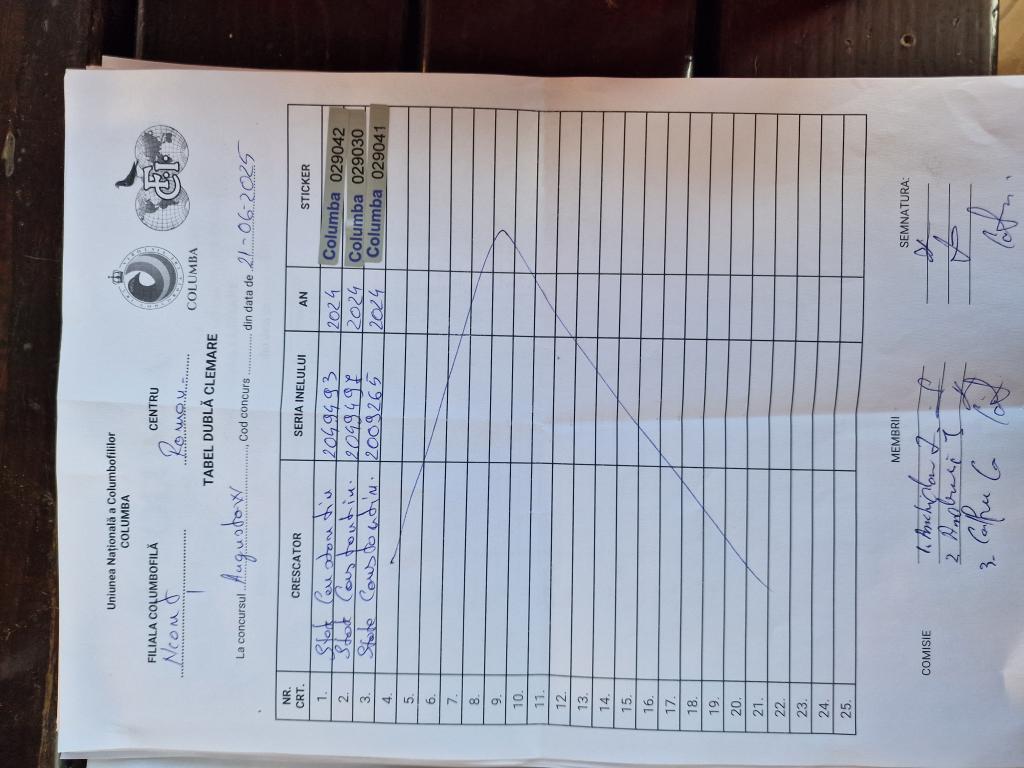 Uniunea Națională a Columbofililor
COLUMBA
COLUMBA
FILIALA COLUMBOFILĂ CENTRU
Neamț Roman
TABEL DUBLĂ CLEMARE
La concursul Augustow, Cod concurs .......... din data de 21-06-2025
NR. CRT. CRESCATOR SERIA INELULUI AN STICKER
1. Constantin 2049493 2024 Columba 029042
2. Constantin. 2049497 2024 Columba 029030
3. Constantin. 2009265 2024 Columba 029041
4.
5.
6.
7.
8.
9.
10.
11.
12.
13.
14.
15.
16.
17.
18.
19.
20.
21.
22.
23.
24.
25.
COMISIE MEMBRII SEMNATURA:
1.
2
3.